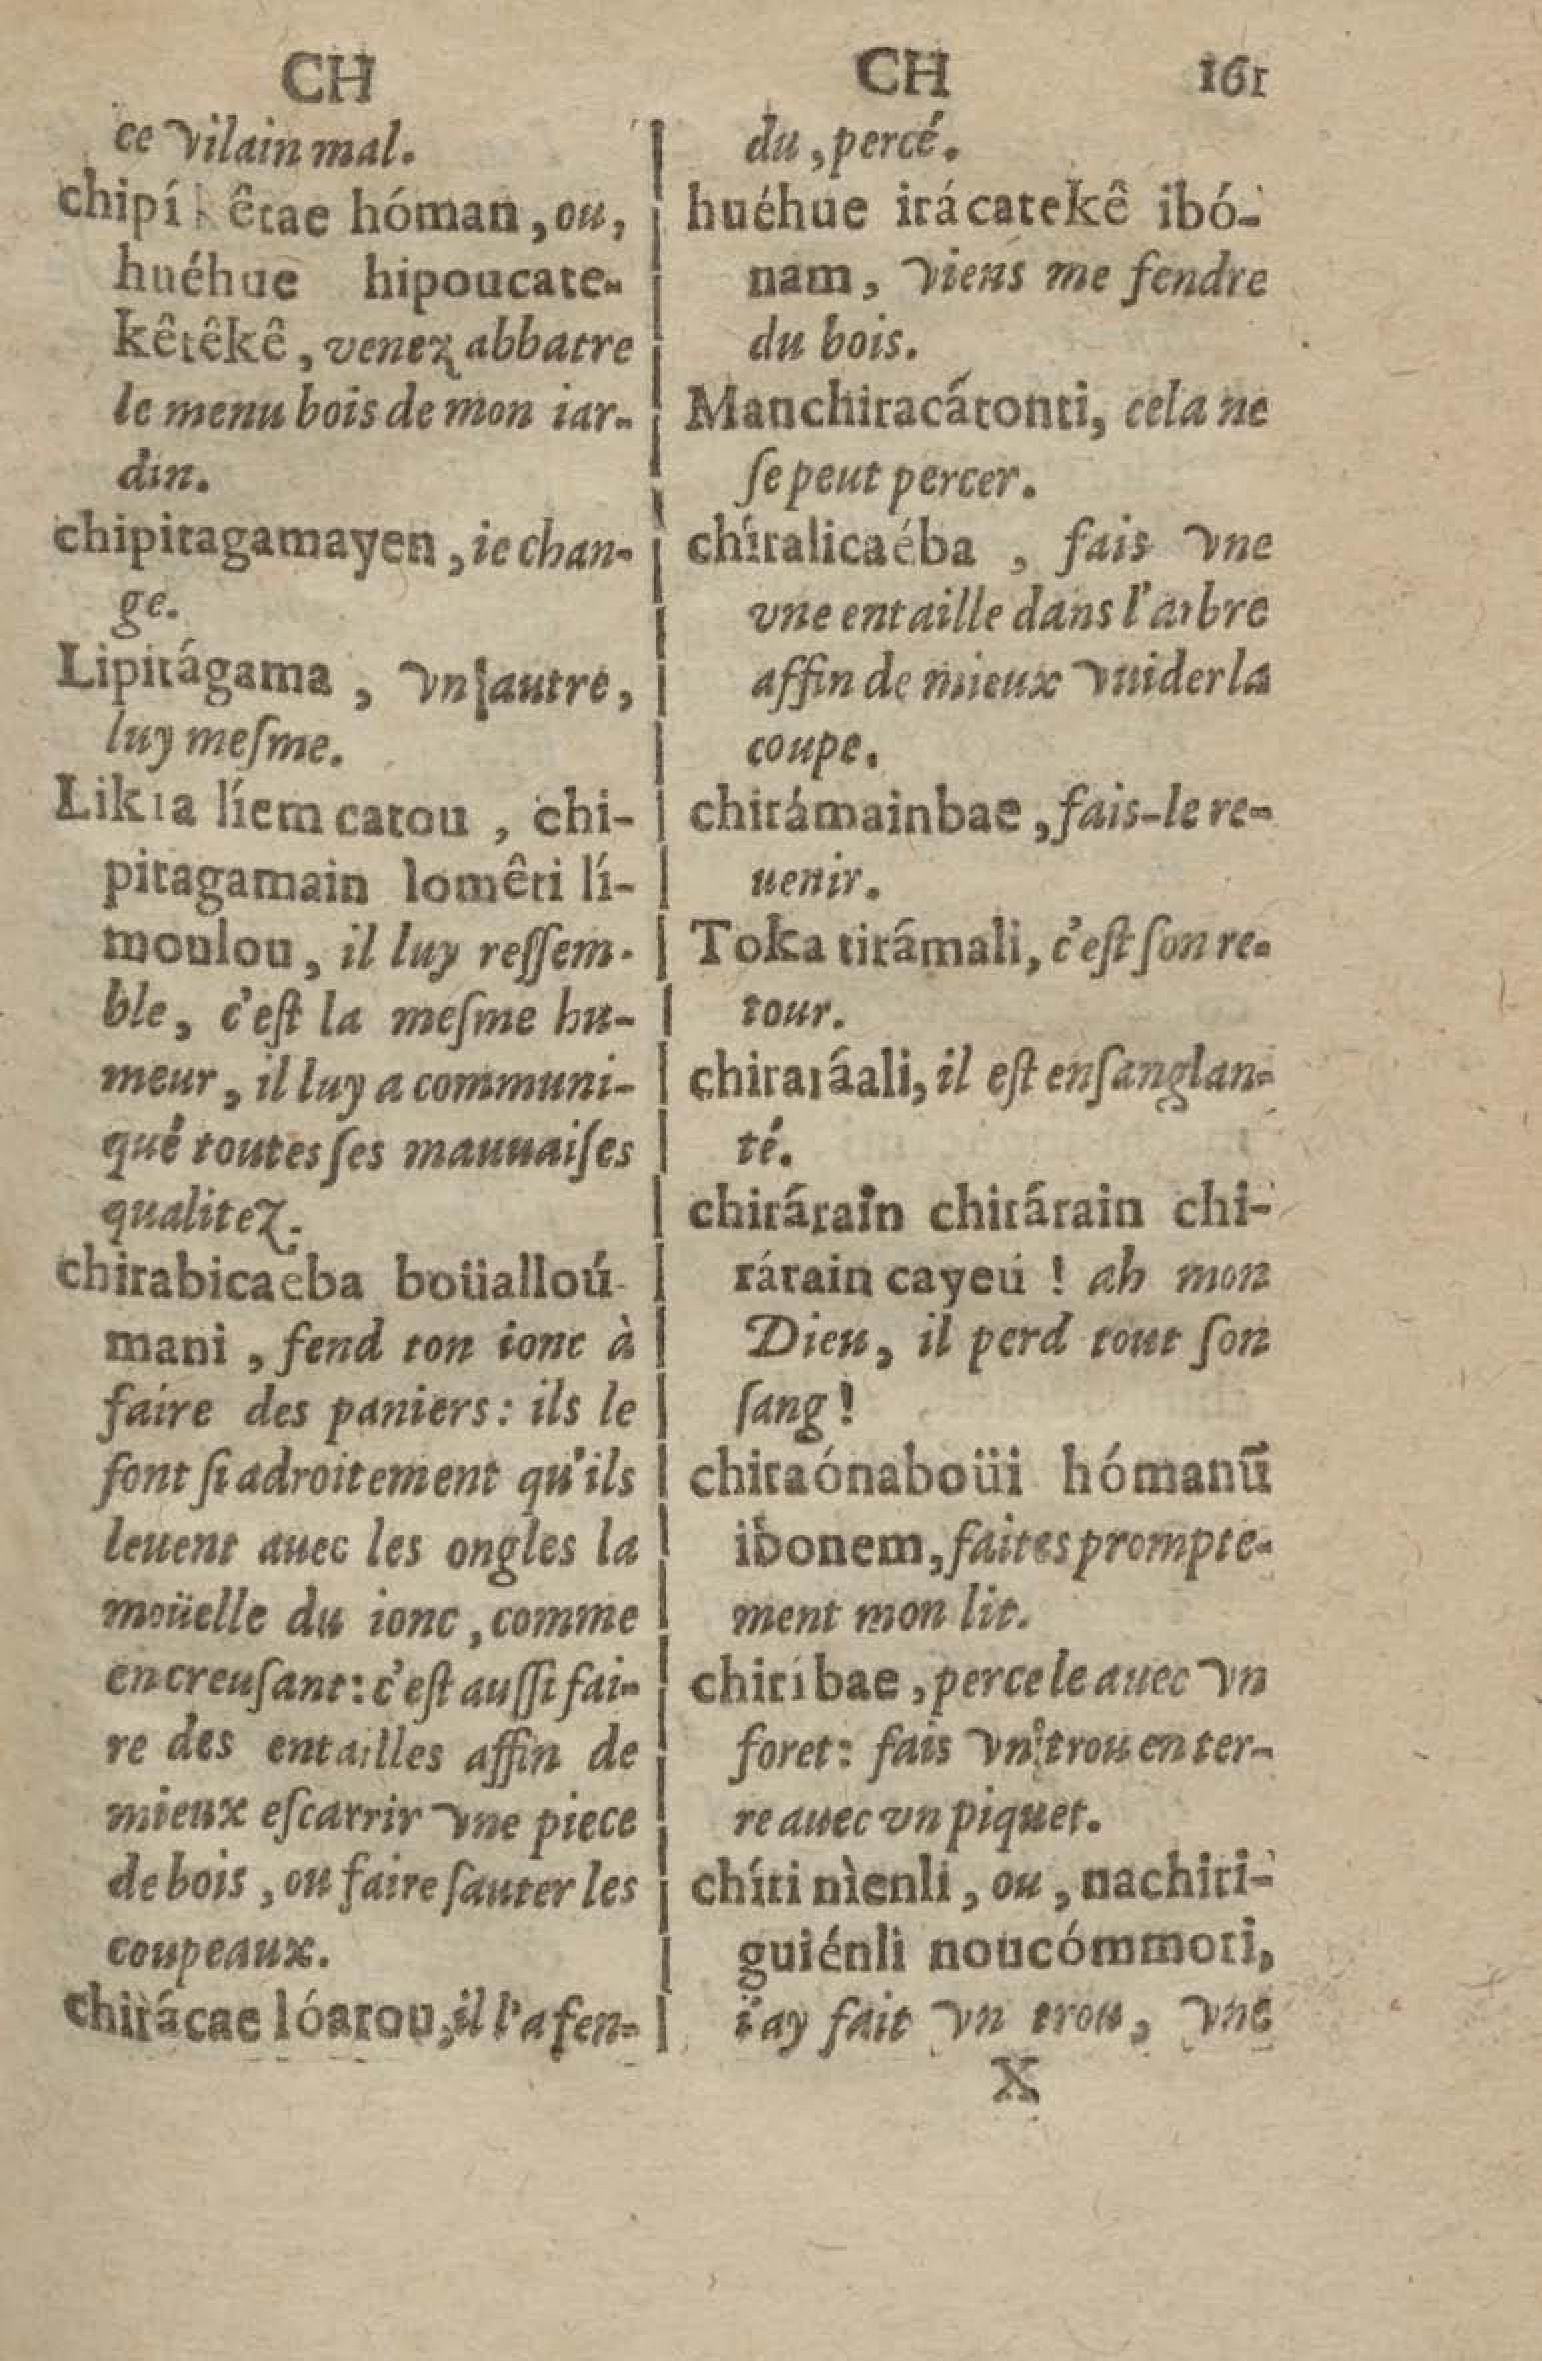 CH
ce vilain mal.
chipí kêtae hóman, ou,
huéhue hipoucate-
kêtêkê, venez abbatre
le menu bois de mon iar-
din.
chipitagamayen, ie chan-
ge.
Lipitágama, vn autre,
luy meſme.
Likia líem catou, chi-
pitagamain lomêti lí-
moulou, il luy reſſem-
ble, c'eſt la meſme hu-
meur, il luy a communi-
qué toutes ſes mauuaiſes
qualitez.
chirabicaeba boüalloú-
mani, fend ton ionc à
faire des paniers: ils le
font ſi adroitement qu'ils
leuent auec les ongles la
moüelle du ionc, comme
en creuſant: c'eſt auſſi fai-
re des entailles affin de
mieux eſcarrir vne piece
de bois, ou faire ſauter les
coupeaux.
chirácae lóatou, il l'a fen-
CH 161
du, percé.
huéhue irácatekê ibó-
nam, viens me fendre
du bois.
Manchiracátonti, cela ne
ſe peut percer.
chíralicaéba, fais vne
vne entaille dans l'arbre
affin de mieux vuider la
coupe.
chirámainbae, fais-le re-
uenir.
Toka tirámali, c'eſt ſon re-
tour.
chiraráali, il eſt enſanglan-
té.
chirárain chirárain chi-
rárain cayeú! ah mon
Dieu, il perd tout ſon
ſang!
chiraónaboüi hómanũ
ibonem, faites prompte-
ment mon lit.
chiríbae, perce le auec vn
foret: fais vn trou en ter-
re auec vn piquet.
chíri nìenli, ou, nachiri-
guiénli noucómmori,
i'ay fait vn trou, vne
X